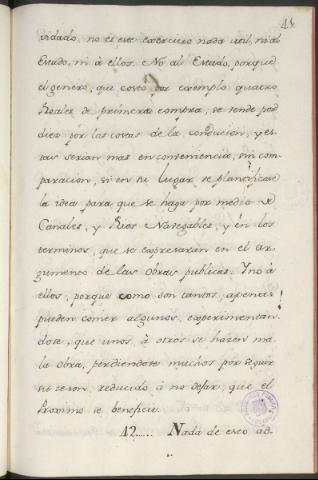 41
vidado, no es este exercicio nada util, ni al
Estado, ni à ellos. No al Estado, porque
el genero, que costó por exemplo quatro
Reales de primera compra, se vende por
diez por las costas de la conducion, y es-
tas serían mas en conveniencia, sin com-
paracion, si en su lugar se plantificase
la idea para que se haga por medio de
Canales, y Rios Navegables, y en los
terminos, que se expresarán en el ar-
gumento de las obras publicas. Y no à
ellos, porque como son tantos, apenas
pueden comer algunos, experimentan-
dose, que unos à otros se hazen ma-
la obra, perdiendose muchos por seguir
reducido à no dejar, que el
Proximo se beneficie.
42..... Nada de esto ad-